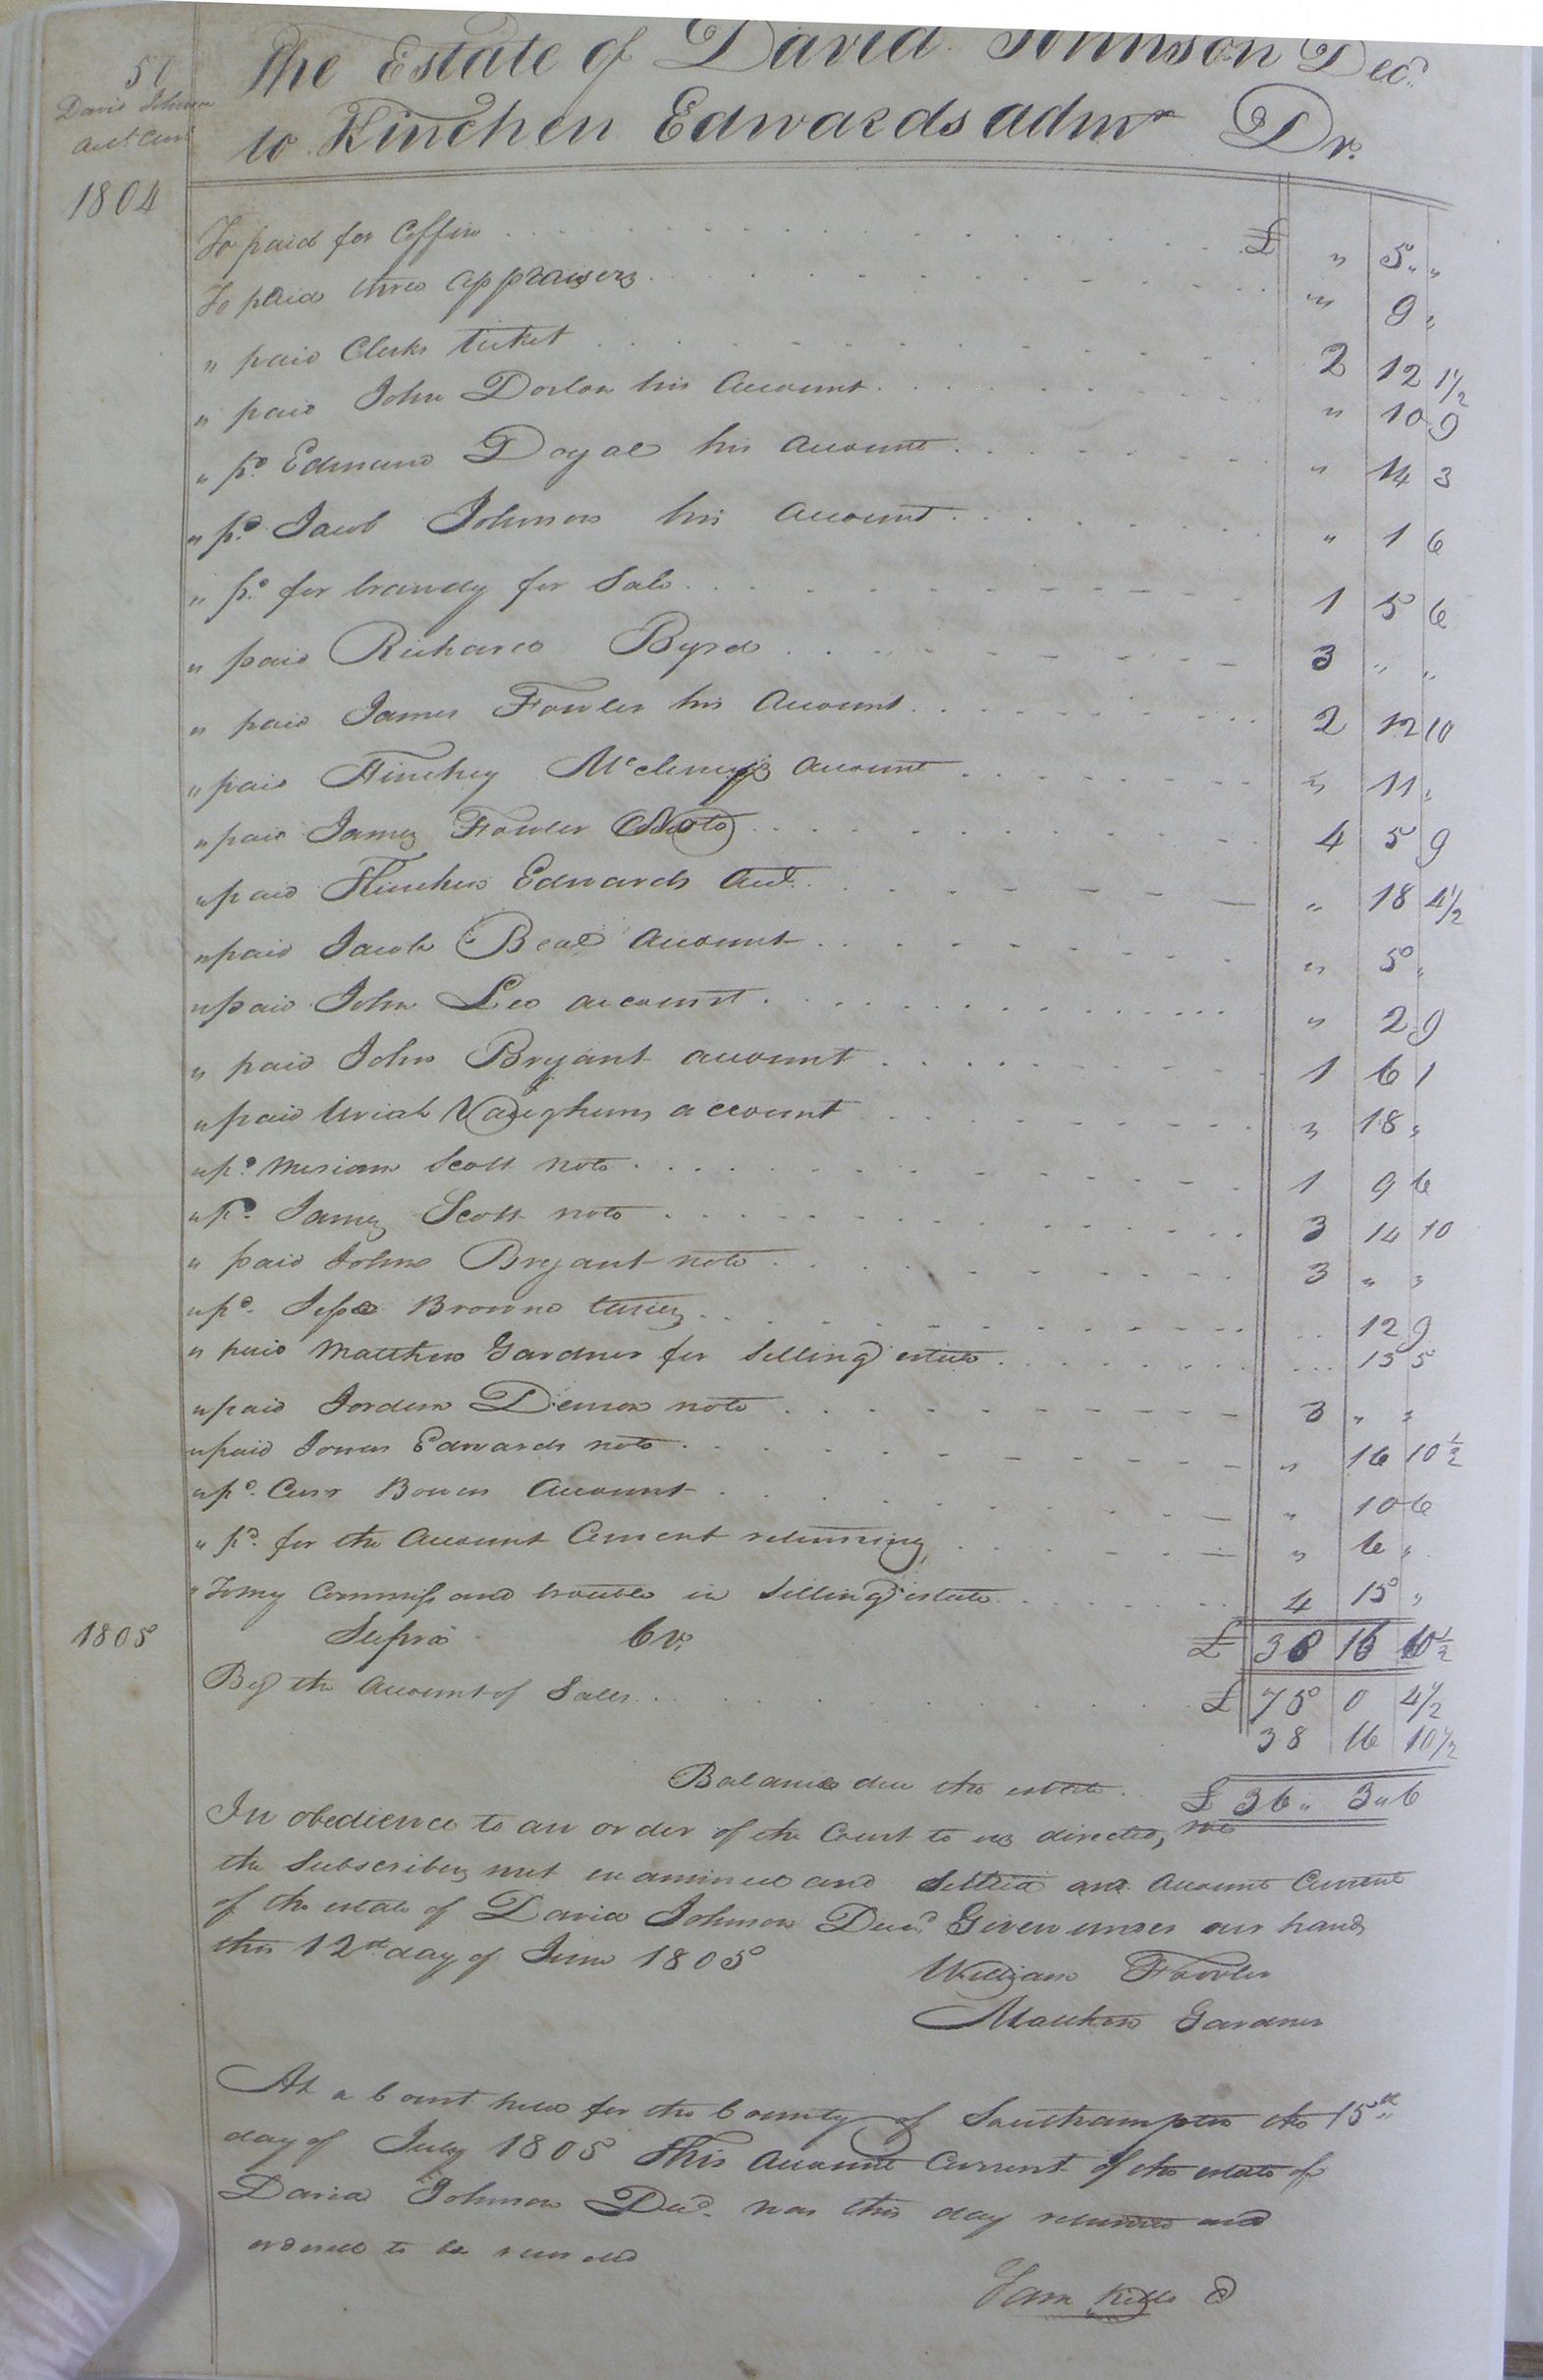 57
David Johnson
Act Curt
The Estate of David Johnson Decd.
to Kinchen Edwards admr Dr.
1804
To paid for Coffin £ " 5 " "
To paid three appraisers " 9 "
" paid Clerks ticket 2 12 1½
" paid John Dorlon his Account " 10 9
" pd. Edmund Doyal his account " 14 3
" pd. Jacob Johnson his account " 1 6
" pd. for brandy for Sale 1 5 6
" paid Richard Byrd 3 " "
" paid James Fowler his Account 2 12 10
" paid Hinchey Mcclenys account " 11 "
" paid James Fowler (Note) 4 5 9
" paid Kinchen Edwards Act. " 18 4½
" paid Jacob Beal account " 5 "
" paid John Lee account " 2 9
" paid John Bryant account 1 6 1
" paid Uriah Vaughans account " 18 "
" pd. Meriam Scott note 1 9 6
" pd. James Scott note 3 14 10
" paid John Bryant note 3 " "
" pd. Jesse Browne taxes 12 9
" paid Matthew Gardner for Selling estate 13 5
" paid Jordan Denson note 3 " "
" paid Edwards note " 16 10½
" pd. Carr Bowers Account " 10 6
" pd. for the Account Current returning " 6 "
" To my Commiss and trouble in Selling estate 4 15 "
1805 Supra Cr. £ 38 16 10½
By the Account of Sales £ 75 0 4½
38 16 10½
Balance due the estate £ 36 " 3 " 6
In obedience to an order of the Court to us directed, we
the Subscribers met examined and Settled and Account Current
of the estate of David Johnson Decd. Given under our hands
this 12th day of June 1805
William Fowler
Matthew Gardner
At a Court held for the County of Southampton the 15th
day of July 1805 This Account Current of the estate of
David Johnson Decd. was this day returned and
ordered to be recorded
Sam Kello C